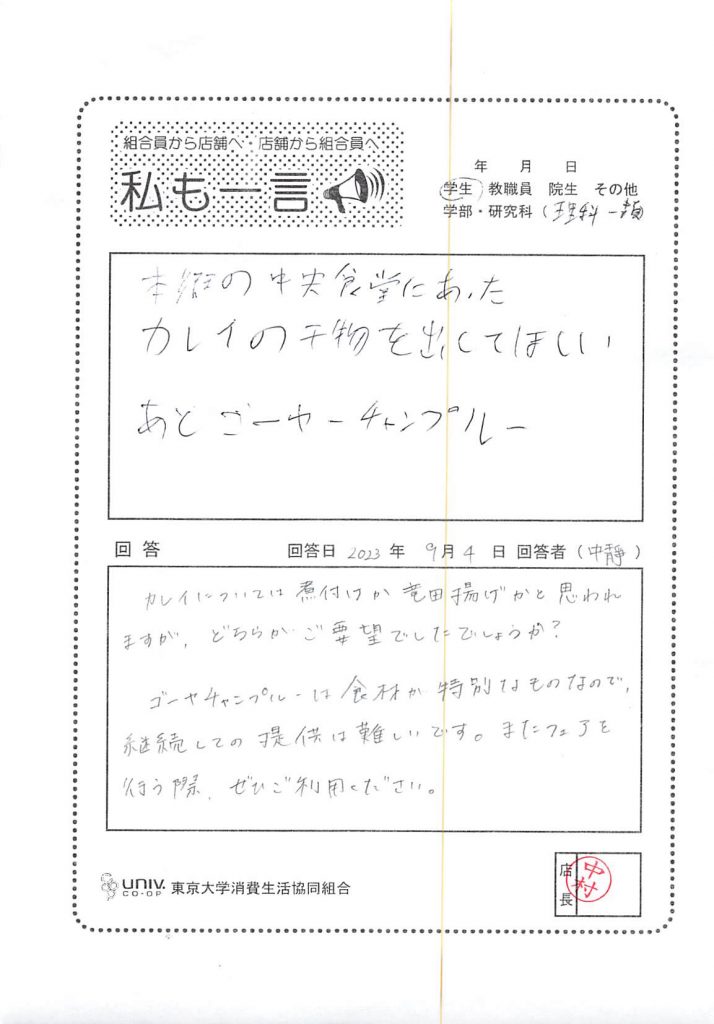 組合員から店舗へ・店舗から組合員へ
私も一言
年 月 日
学生 教職員 院生 その他
学部・研究科 (理科一類)
本郷の中央食堂にあった
カレイの干物を出してほしい
あと ゴーヤーチャンプルー
回答 回答日 2023 年 9 月 4 日 回答者 (中静)
カレイについては煮付けか竜田揚げかと思われ
ますが、どちらかご要望でしたでしょうか?
ゴーヤチャンプルーは食材が特別なものなので、
継続しての提供は難しいです。またフェアを
行う際、ぜひご利用ください。
UNIV. CO-OP 東京大学消費生活協同組合
店長
中村